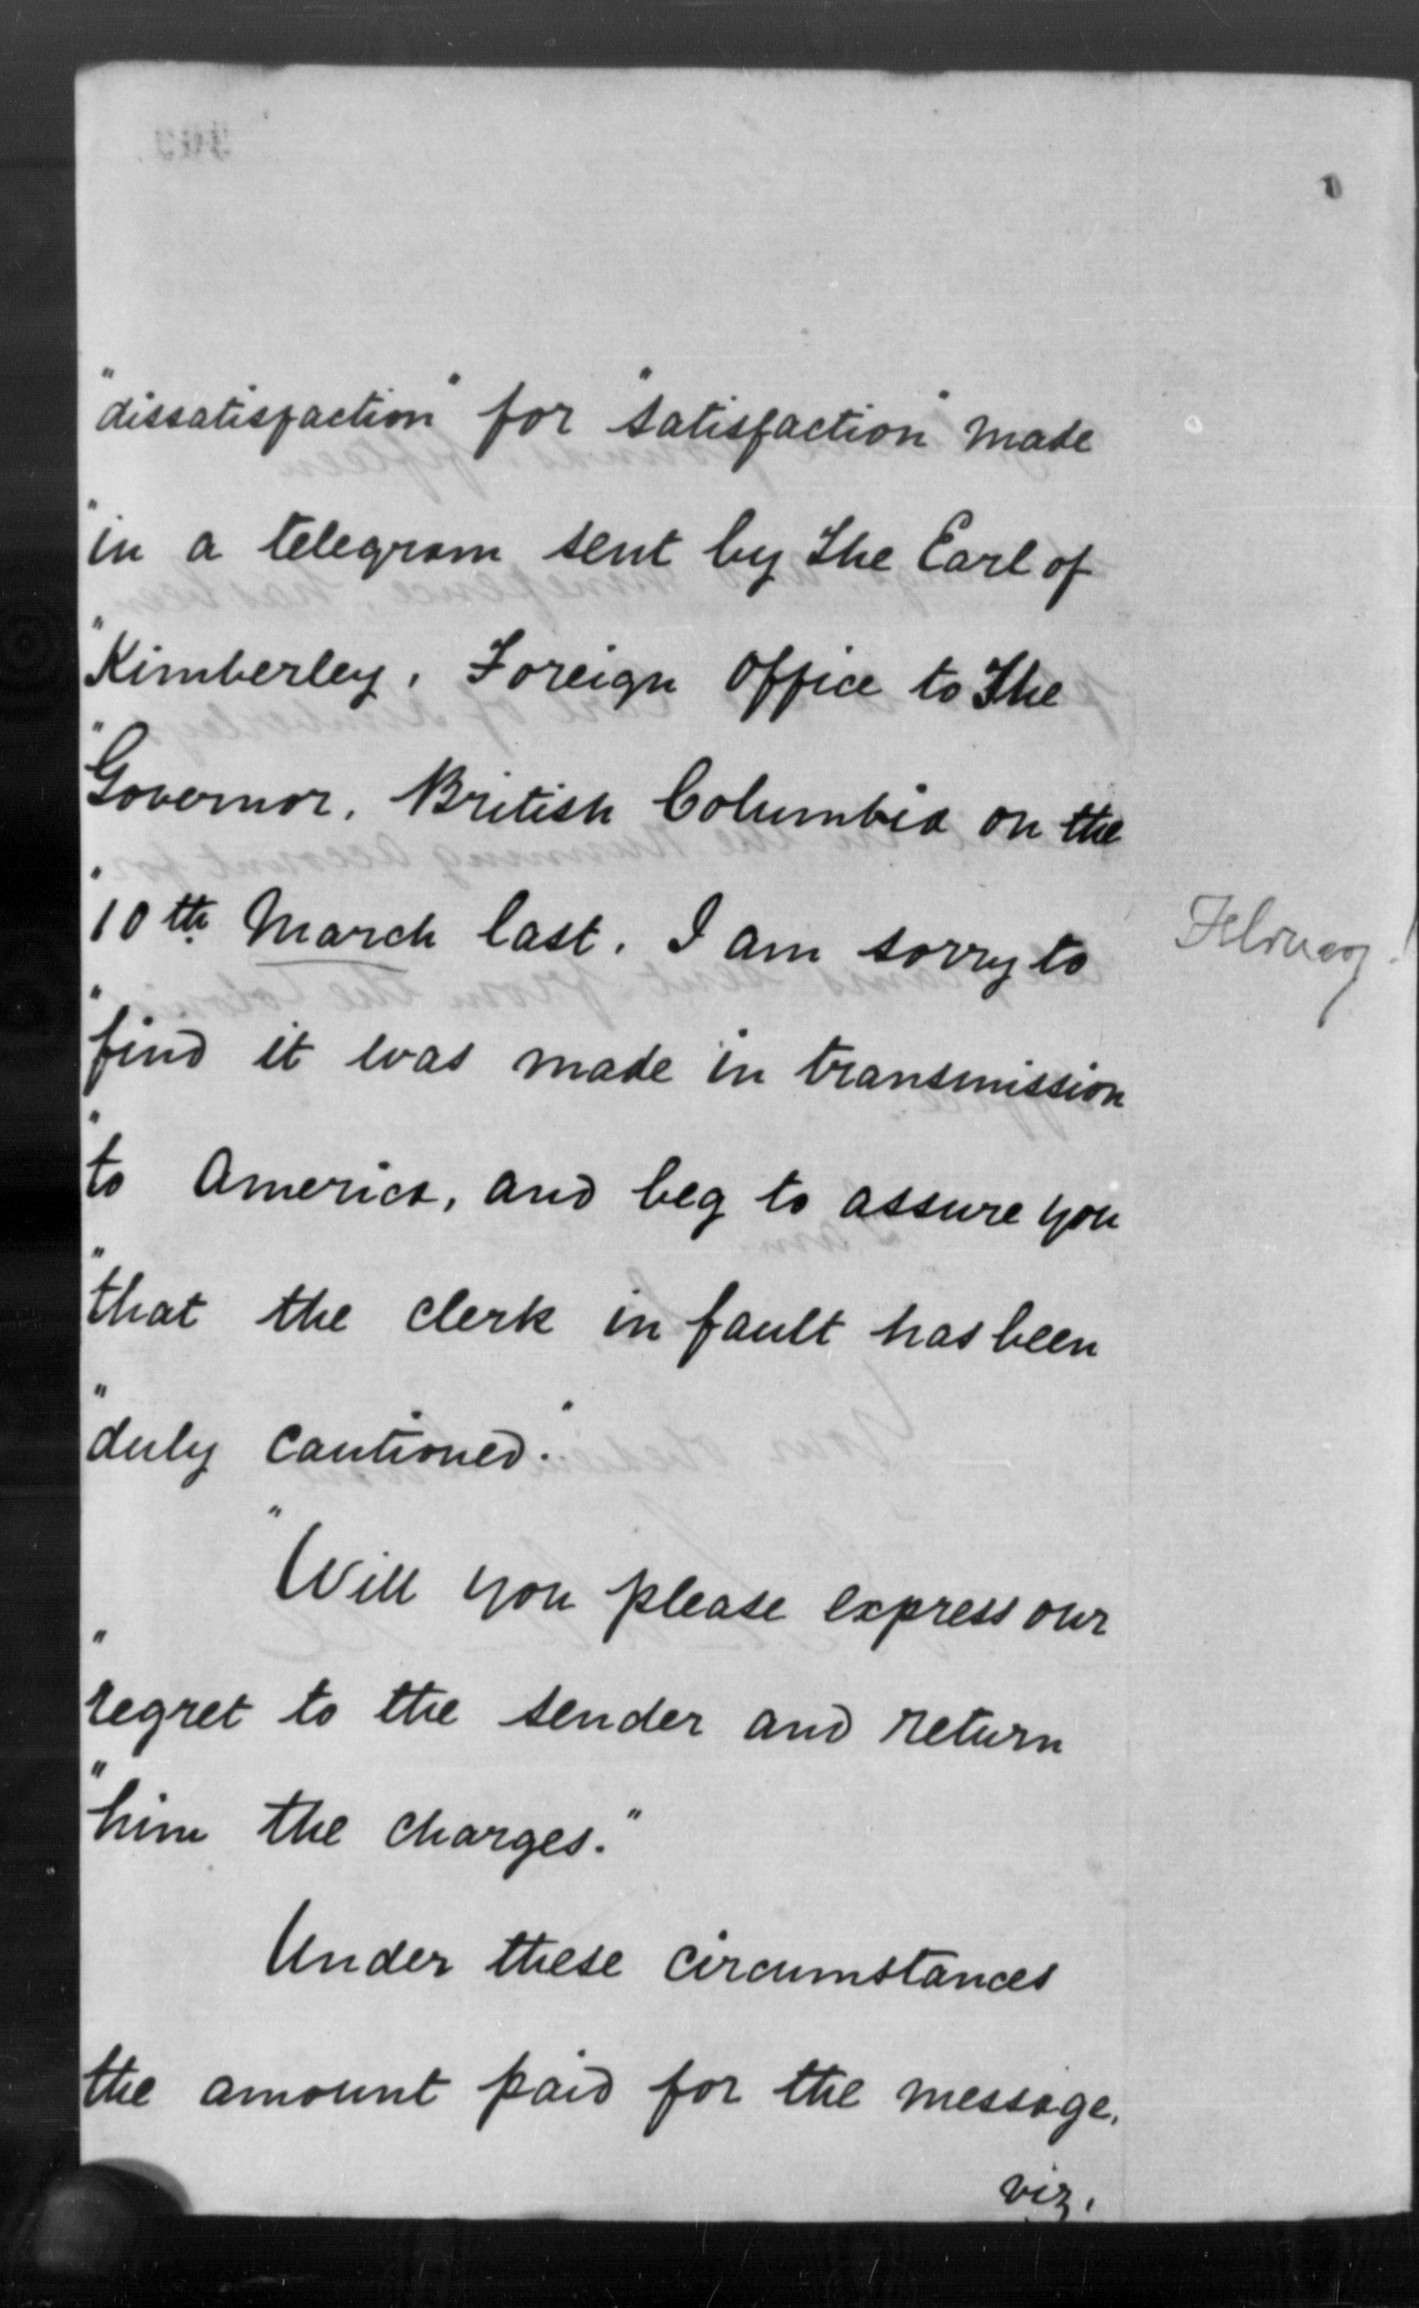 "dissatisfaction" for "satisfaction" made
"in a telegram sent by The Earl of
"Kimberley, Foreign Office to The
"Governor, British Columbia on the
"10th March last. I am sorry to
February!
"find it was made in transmission
"to America, and beg to assure you
"that the clerk in fault has been
"duly cautioned."
"Will you please express our
"regret to the sender and return
"him the charges."
Under these circumstances
the amount paid for the message,
viz,